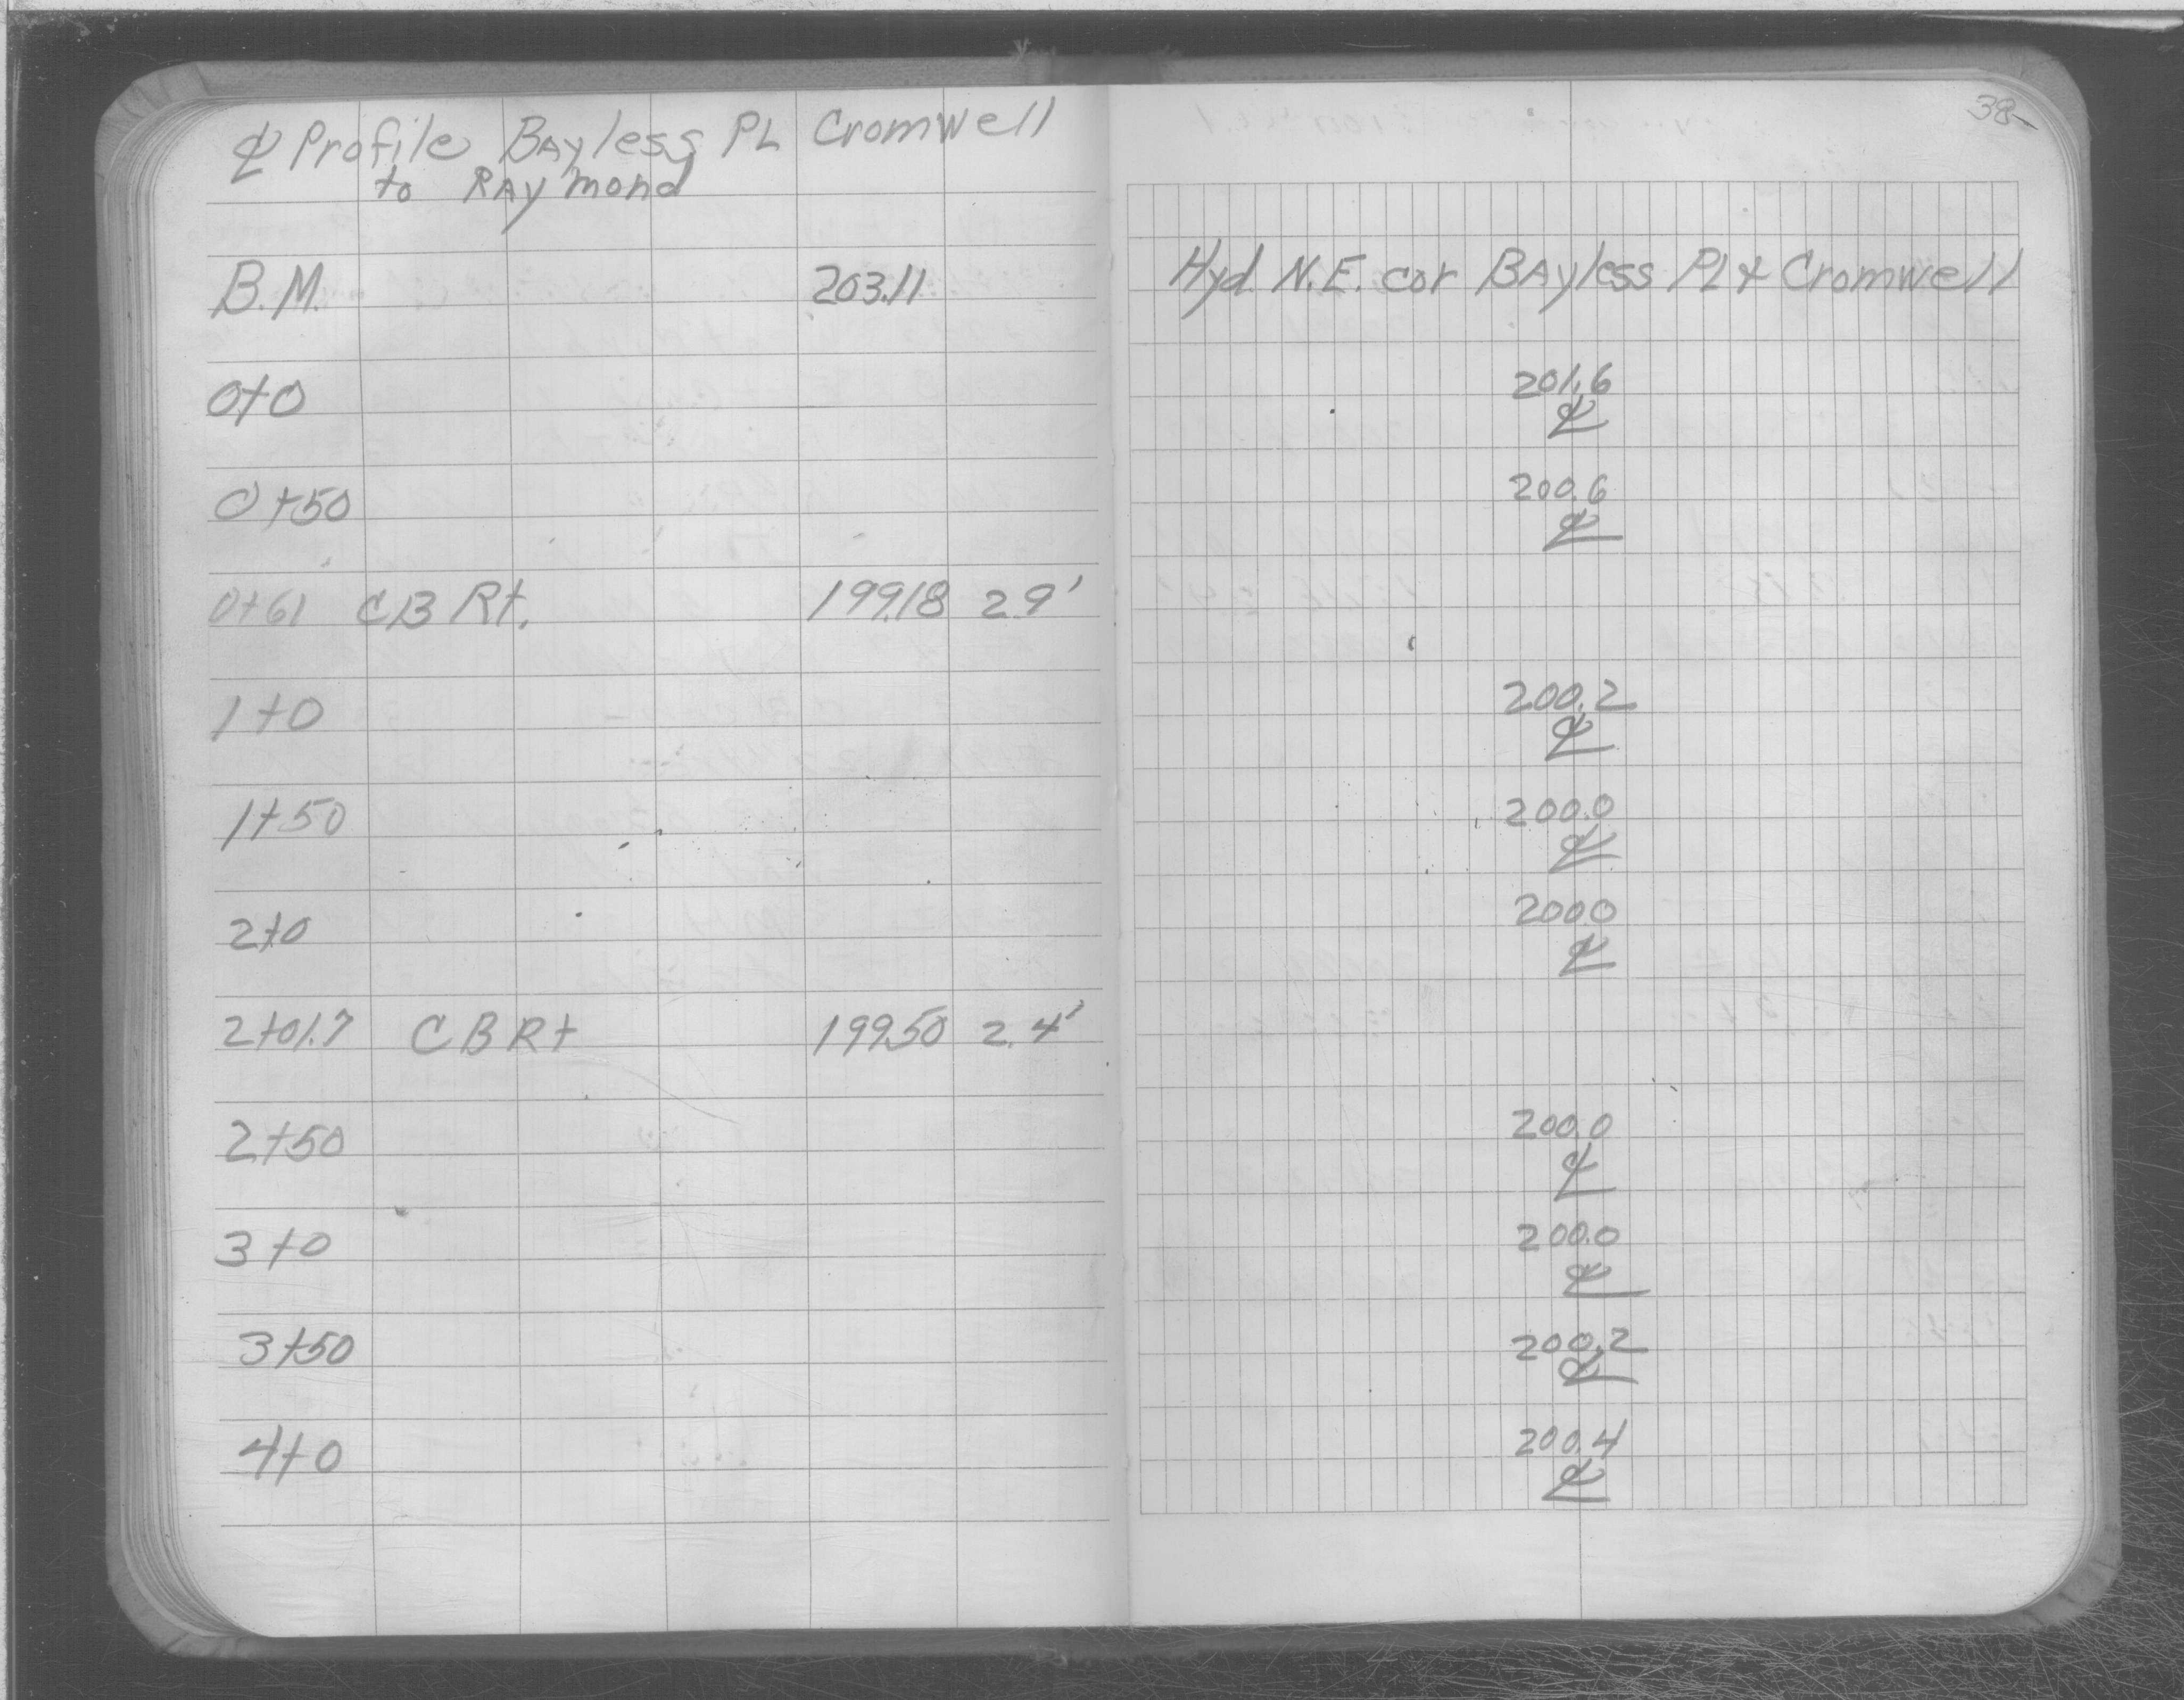 ℄ Profile Bayless PL Cromwell
to Raymond
38
B.M. 203.11 Hyd. N.E. cor Bayless PL & Cromwell
0+0 201.6
℄
0+50 200.6
℄
0+61 CB Rt. 199.18 2.9'
1+0 200.2
℄
1+50 200.0
℄
2+0 200.0
℄
2+01.7 CB Rt 199.50 2.4'
2+50 200.0
℄
3+0 200.0
℄
3+50 200.2
℄
4+0 200.4
℄